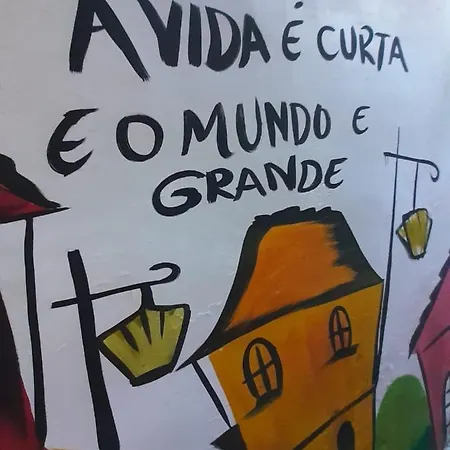 A VIDA É CURTA
E O MUNDO E
GRANDE